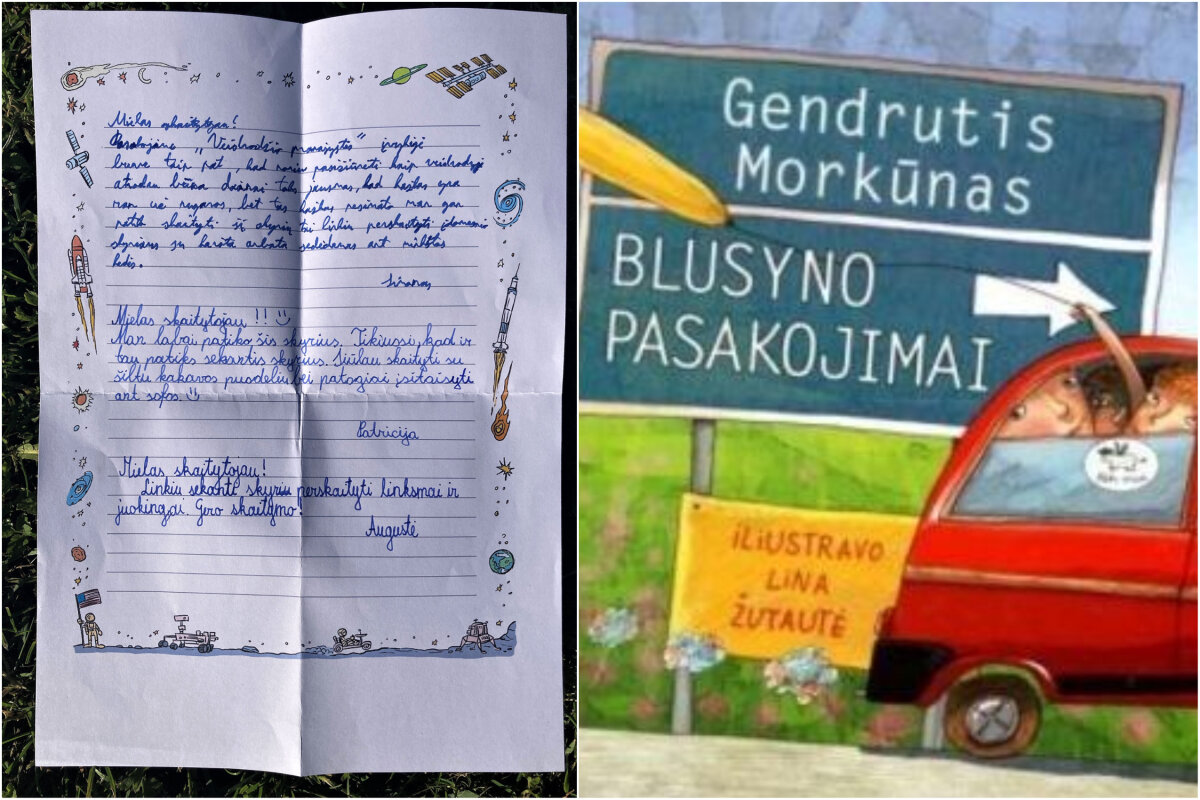 Mielas skaitytojau!
Pasakojime „Veidrodžio pranašystės"
buvo taip pat, kad pasižiūrėti kaip veidrodyje
atrodau būna toks jausmas, kad kažkas yra
man už nugaros, bet tas man gan
patiko skaityti šį skyrių tai linkiu perskaityti
skyrius su karšta arbata sėdėdamas ant
Mielas skaitytojau!!! ☺
Man labai patiko šis skyrius. Tikiuosi, kad ir
tau patiks sekantis skyrius. Siūlau skaityti su
šiltu kakavos puodeliu bei patogiai įsitaisyti
ant sofos ☺
Patricija
Mielas skaitytojau!
Linkiu sekantį skyrių perskaityti linksmai ir
juokingai. Gero skaitymo!
Augustė
Gendrutis
Morkūnas
BLUSYNO
PASAKOJIMAI
ILIUSTRAVO
LINA
ŽUTAUTĖ